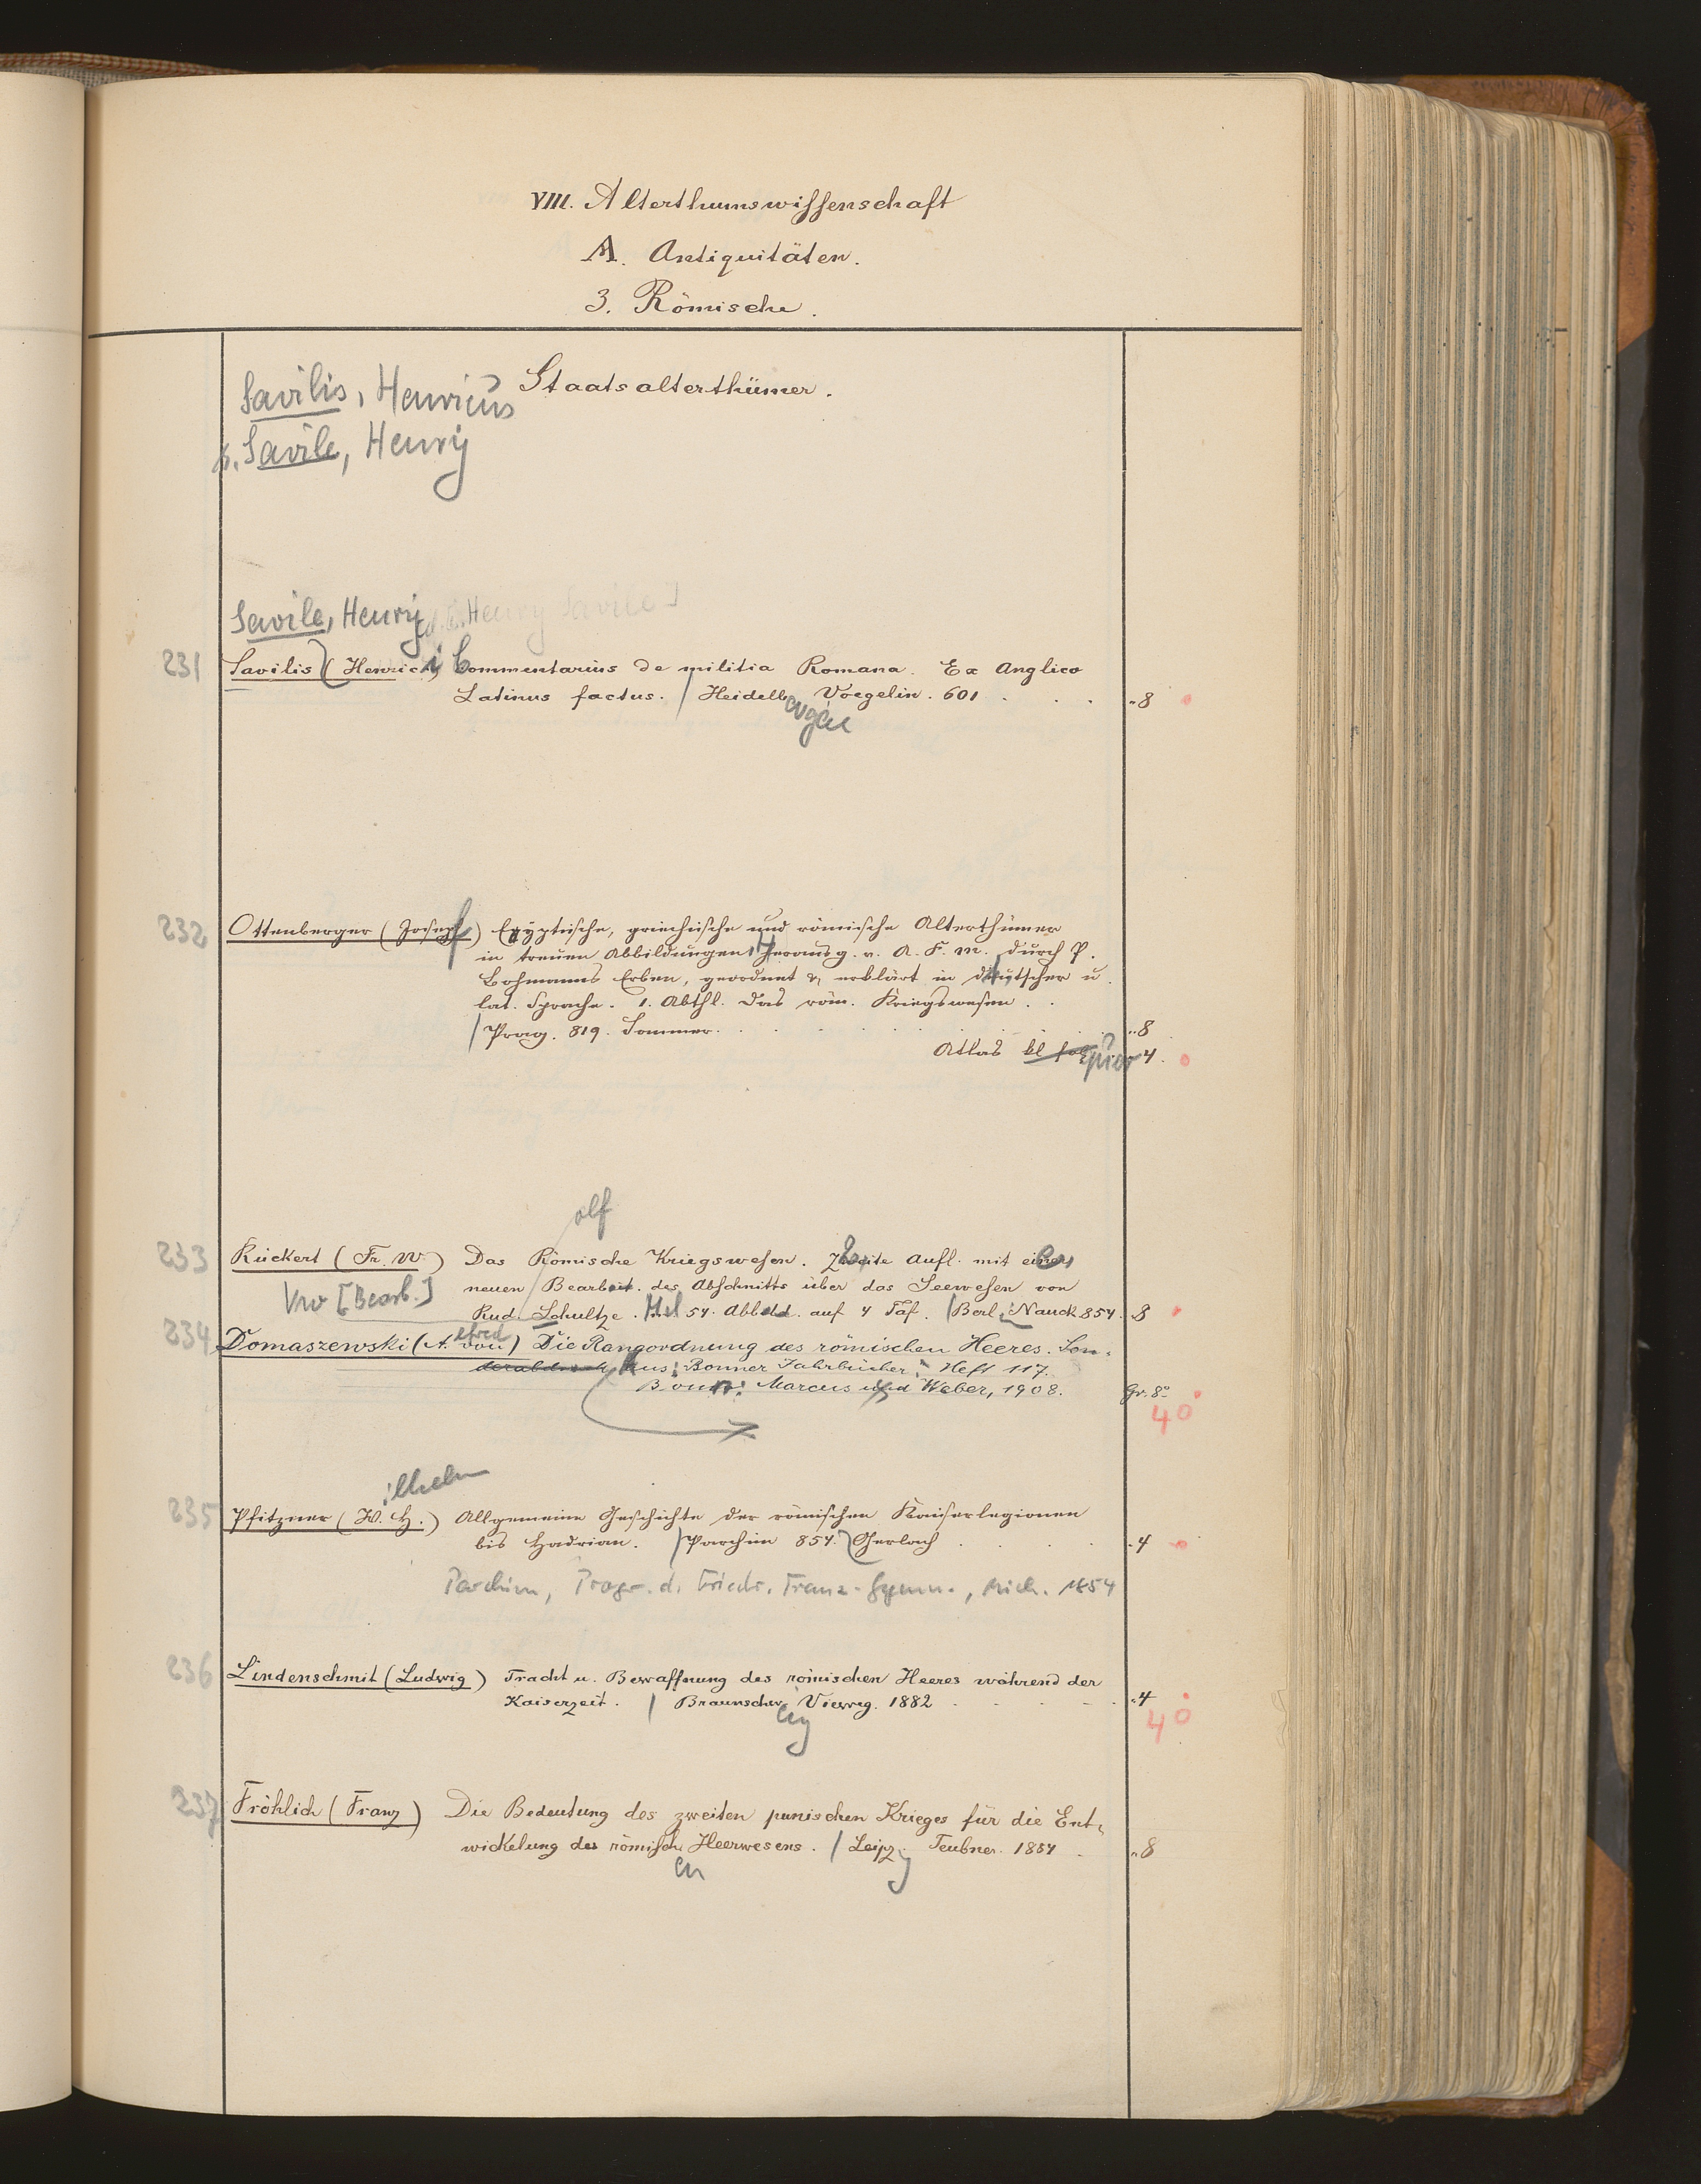 VIII. Alterthumswissenschaft
A. Antiquitäten.
3. Römische.
Staatsalterthümer.
Savilis, Henricus
s. Savile, Henry
Savile, Henry [d. i. Henry Savile]
231 Savilis (Henrici) Commentarius de militia Romana. Ex Anglico
Latinus factus. / Heidelb Voegelin. 601 . . . „8
232 Ottenberger (Joseph) Egyptische, griechische und römische Alterthümer
in treuen Abbildungen, Herausg. v. A. F. M. durch P.
Bohmanns Erben, geordnet u. erklärt in deutscher u.
lat. Sprache. 1. Abthl. Das röm. Kriegswesen . .
/ Prag. 819. Sommer. . . . „8
Atlas kl fol 4.
olf
233 Rückert (Fr. W) Das Römische Kriegswesen. Zweite Aufl. mit einer
neuen Bearbeit. des Abschnitts über das Seewesen von
Vw [Bearb.]
Rud. Schultze. Mit 54. Abbild. auf 4 Taf. / Berl: Nauck 854. 8
234 Domaszewski (A. von) Die Rangordnung des römischen Heeres. Son-
lfred
derabdruck Aus: Bonner Jahrbücher, Heft 117.
Bonn: Marcus und Weber, 1908. Gr. 8°
4°
ilhelm
235 Pfitzner (W. H.) Allgemeine Geschichte der römischen Kaiserlegionen
bis Hadrian. / Parchim 854. Gerlach . . . 4
Parchim, Progr. d. Friedr. Franz-Gymn., Mich. 1854
236 Lindenschmit (Ludwig) Tracht u. Bewaffnung des römischen Heeres während der
Kaiserzeit. / Braunschw Vieweg. 1882 . . . „4
eig
4°
237 Fröhlich (Franz) Die Bedeutung des zweiten punischen Krieges für die Ent-
wickelung des römisch Heerwesens. / Leipz Teubner. 1884 . „8
en g